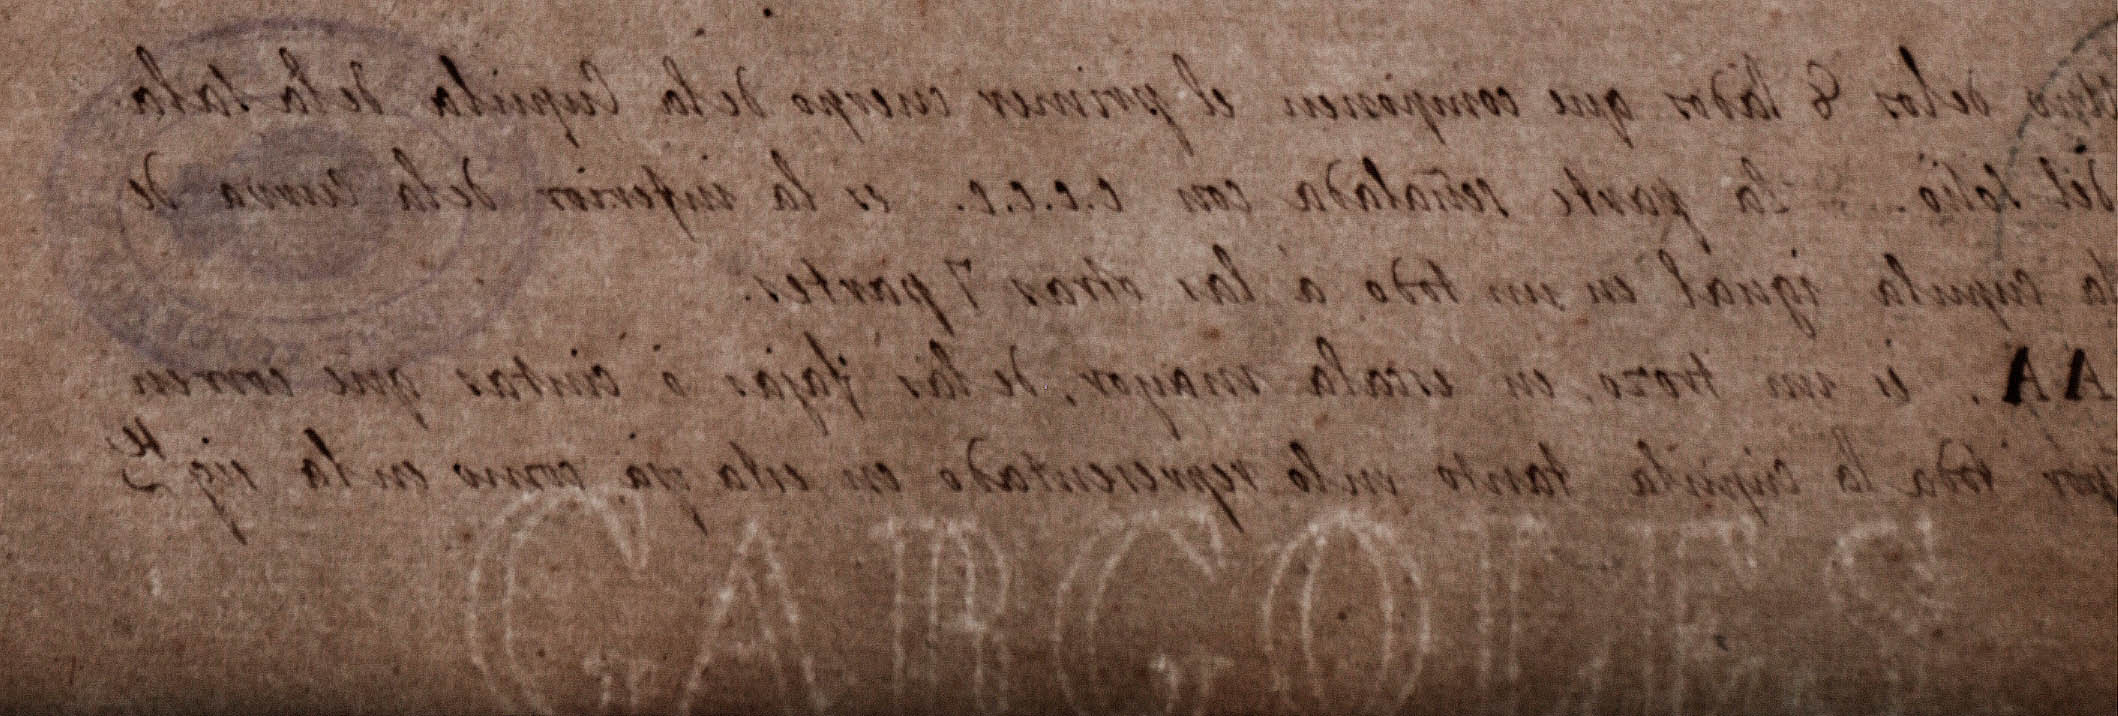 uno delos 8 lados que componen el primer cuerpo dela Cupula dela sala
del solio. = La parte señalada con c.c.c.c. es la inferior dela Curva de
la cupula igual en un todo á las otras 7 partes.
AA. es un trozo, en escala mayor, de las fajas ó cintas que corren
por toda la cupula tanto en lo representado en esta pza, como en la sigte
GARGOLES